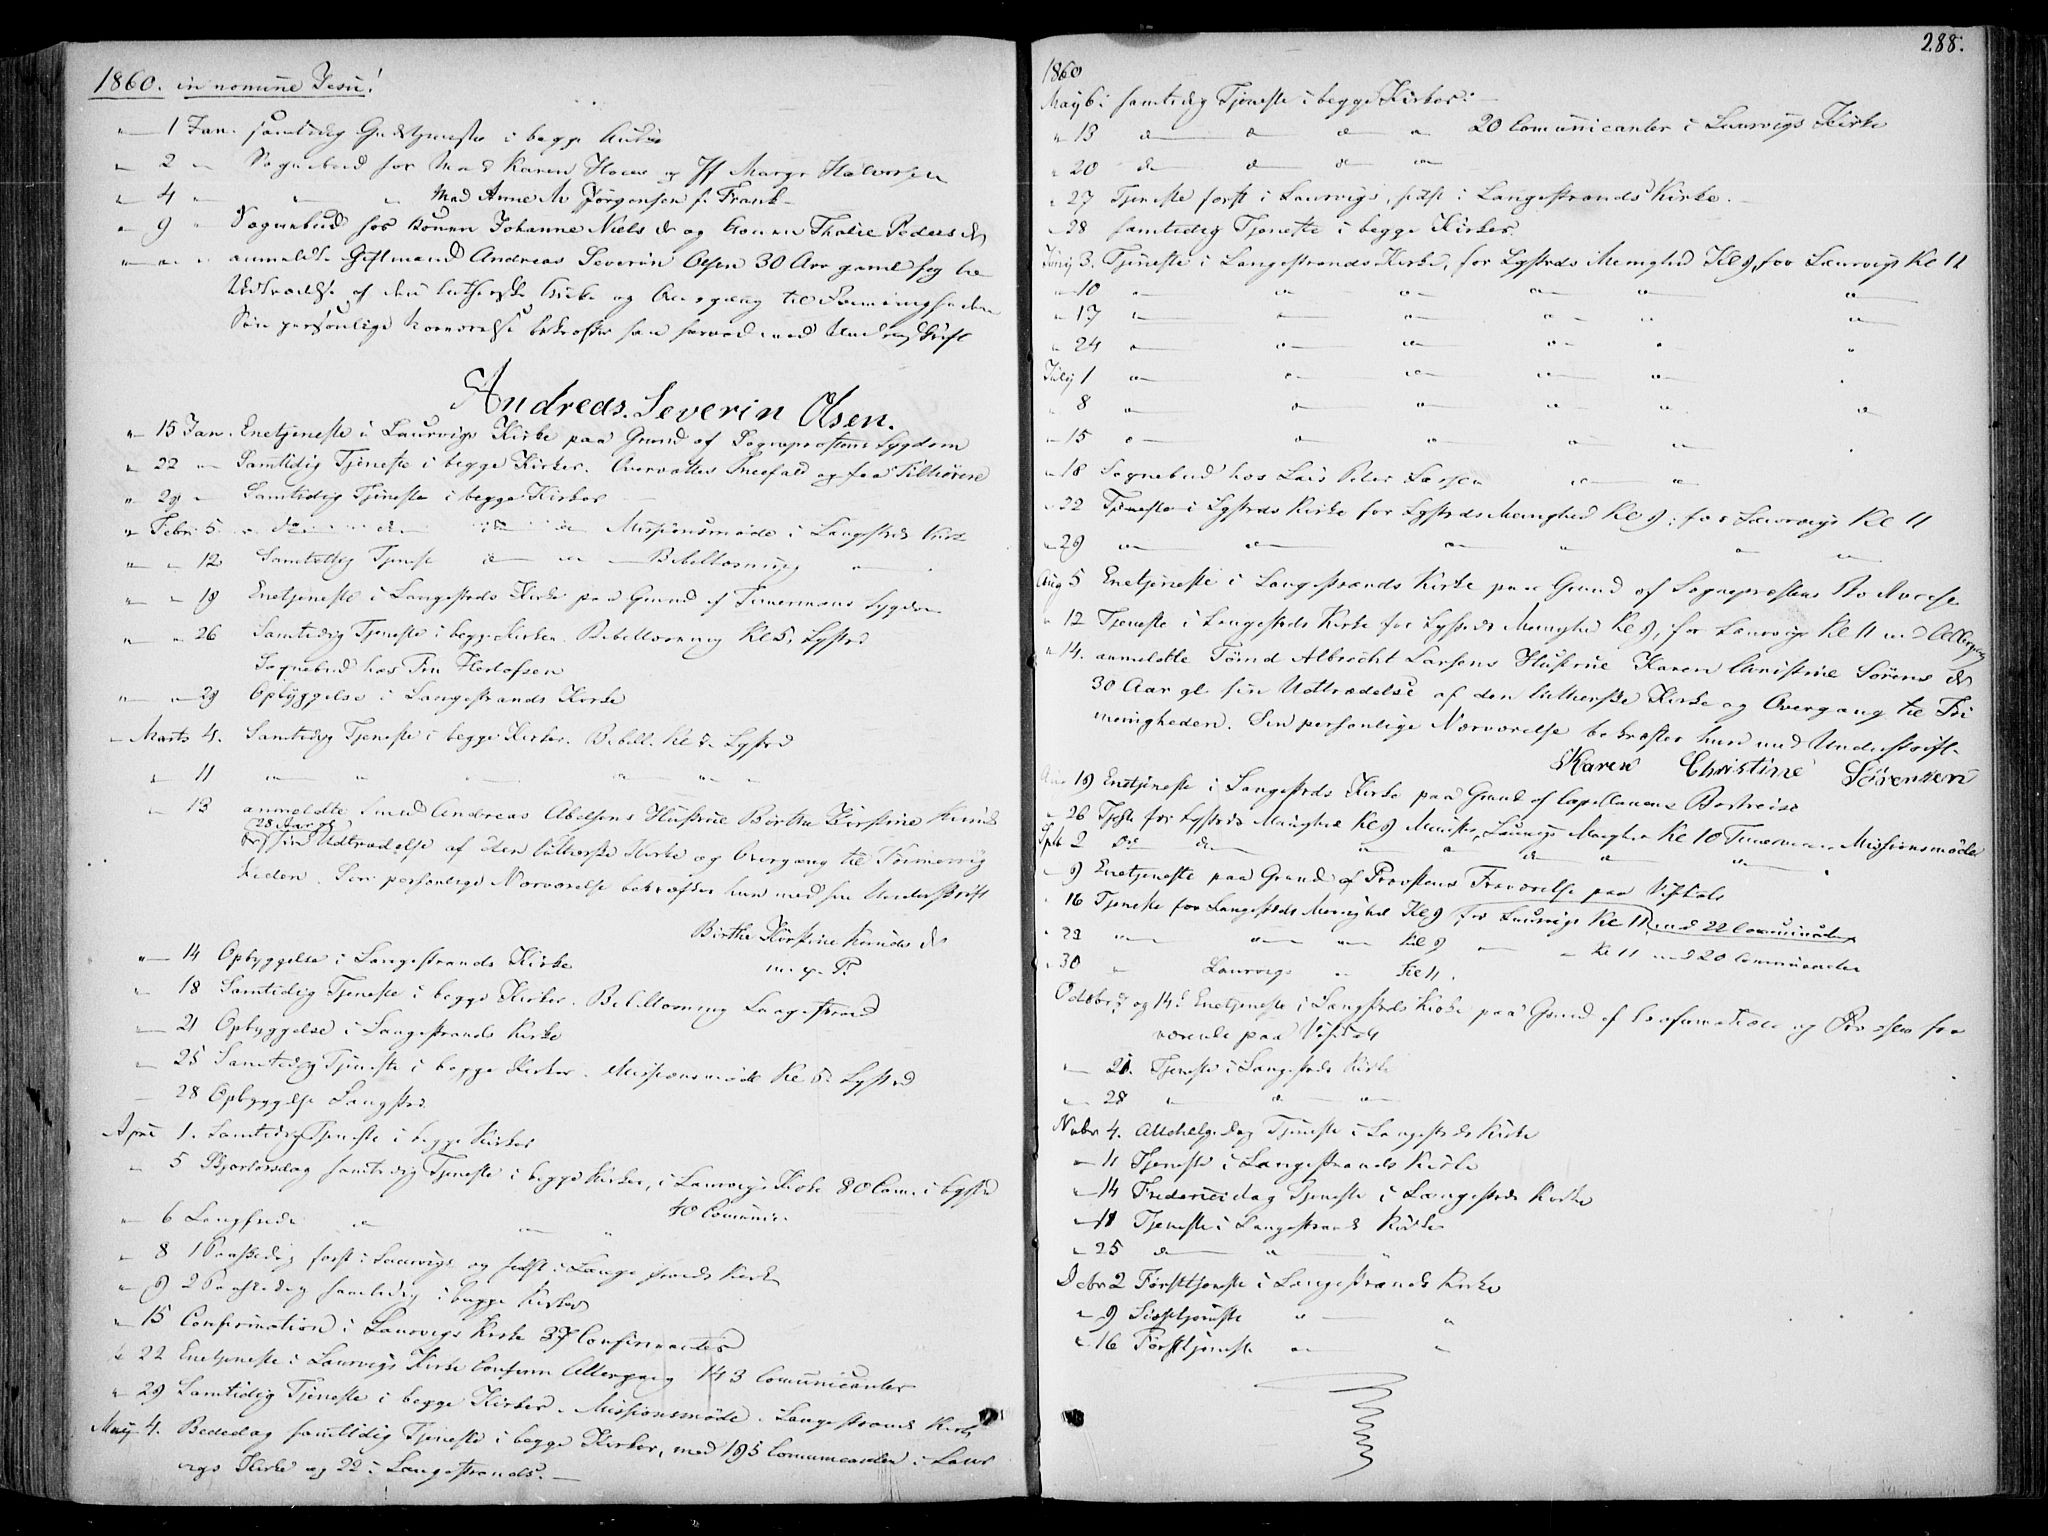 1860. in nomine Jesu!
" 1 Jan. samtidig Gudstjeneste i begge Kirker
" 2 " Sognebud hos Mad Karen og Margr Halvorsen
" 4 " " " Mad Anne M Jørgensen f. Frank
" 9 " Sognebud hos Konen Johanne Niels D og Konen Thalie Peders D
" " " anmeldte Giftmand Andreas Severin Olsen 30 Aar gaml sig til
Udtrædelse af den lutherske Kirke og Overgang til Frimenigheden
Sin personlige Nærværelse bekræfter han herved med Underskrift
Andreas. Severin Olsen.
" 15 Jan. Enetjeneste i Laurvigs Kirke paa Grund af Sognepræstens Sygdom
" 22 " Samtidig Tjeneste i begge Kirker. Overvættes Sneefald og faa Tilhørere
" 29 " Samtidig Tjeneste i begge Kirker
" Febr 5. " do do do Missionsmøde i Langestrds Kirke
" " 12 Samtidig Tjeneste do " Bibellæsning "
" " 19 Enetjeneste i Langestrds Kirke paa Grund af Timermans Sygdom
" " 26 Samtidig Tjeneste i begge Kirker. Bibellæsning Kl 5. Lgstrd
Sognebud hos Fru Herlofsen
" " 29 Opbyggelse i Langestrands Kirke
" Marts 4. Samtidig Tjeneste i begge Kirker. Bibell. Kl 5. Lgstrd
" 11 " " " " " "
" 13 anmeldte Smed Andreas Abelsens Hustrue Birthe Kirstine Knuds
28 Aar gl
D sin Udtrædelse af den lutherske Kirke og Overgang til Frimenig
heden. Sin personlige Nærværelse bekræfter hun med sin Underskrift
Birthe Kirstine Knuds D
m. p. P.
" 14 Opbyggelse i Langestrands Kirke
" 18 Samtidig Tjeneste i begge Kirker. Bibellæsning Langestrand
" 21 Opbyggelse i Langestrands Kirke
" 25 Samtidig Tjeneste i begge Kirker. Missionsmøde Kl 5. Lgstrd
" 28 Opbyggelse Langstrd.
April 1. Samtidig Tjeneste i begge Kirker
" 5 Skjertorsdag samtidig Tjeneste i begge Kirker, i Laurvigs Kirke 80 Com. i Lgstrd
40 Communic.
" 6 Langfreda " " "
" 8 1 Paaskedag først i Laurvigs og sidst i Langestrands Kirke
" 9 2 Paaskedag samtidig i begge Kirker
" 15 Confirmation i Laurvigs Kirke 37 Confirmanter
" 22 Enetjeneste i Laurvigs Kirke Confirm Altergang 143 Comunicanter
" 29 Samtidig Tjeneste i begge Kirker. Missionsmøde i Langestrands Kirke
May 4. Bededag samtidig Tjeneste i begge Kirker, med 195 Comunicanter i Laur
vigs Kirke og 22 i Langestrands.
288.
1860
May 6. samtidig Tjeneste i begge Kirker.
" 13 do do do " 20 Comunicanter i Laurvigs Kirke
" 20 do do do "
" 27 Tjeneste først i Laurvigs, sidst i Langestrands Kirke.
" 28 samtidig Tjeneste i begge Kirker.
Juny 3. Tjeneste i Langestrands Kirke, for Lgstrds Menighed Kl 9, for Laurvigs Kl 11
" 10 " " " " " "
" 17 " " " " " "
" 24 " " " " " "
July 1 " " " " " "
" 8 " " " " " "
" 15 " " " " " "
" 18 Sognebud hos Lars Peter Larsen " "
" 22 Tjeneste i Lgstrds Kirke for Lgstrds Menighed Kl 9. for Laurvigs Kl 11
" 29 " " " " " "
Aug 5 Enetjeneste i Langestrands Kirke paa Grund af Sognepræstens
" 12 Tjeneste i Langestrds Kirke for Lgstrds Menighed Kl 9, for Laurvigs Kl 11 med Altergang
" 14. anmeldte Tømd Albrecht Larsens Hustrue Karen Christine Sørens D
30 Aar gl sin Udtrædelse af den lutherske Kirke og Overgang til Fri
menigheden. Sin personlige Nærværelse bekræfter hun med Underskrift.
Karen Christine Sørensen
Aug 19 Enetjeneste i Langestrds Kirke paa Grund af Capellanens Bortreise
" 26 Tjste for Lgstrds Menighed Kl 9 Laurvigs Menighed Kl 10 Timerman Missionsmøde
Septb 2 do do " " do " "
" 9 Enetjeneste paa Grund af Provstens Fraværelse paa Visitats
" 16 Tjeneste for Langestrds Menighed Kl 9 for Laurvigs Kl 11, med 22 Comunicanter
" 23 " " " Kl 9 " " Kl 11 med 20 Communicanter
" 30 " Laurvigs " Kl 11.
Octobr 7 og 14. Enetjeneste i Langstrds Kirke paa Grund af Confirmation og Provsten fra
værende paa Visitats
" 21. Tjeneste i Langestrds Kirke
" 28 " " "
Novbr 4. Allehelgedag Tjeneste i Langestrds Kirke
" 11 Tjeneste i Langestrands Kirke
" 14 Fredericidag Tjeneste i Langestrds Kirke
" 18 Tjeneste i Langestrands Kirke
" 25 do " "
Debr 2 Førsttjeneste i Langestrands Kirke
" 9 Sidsttjeneste " "
" 16 Førsttjeneste " "